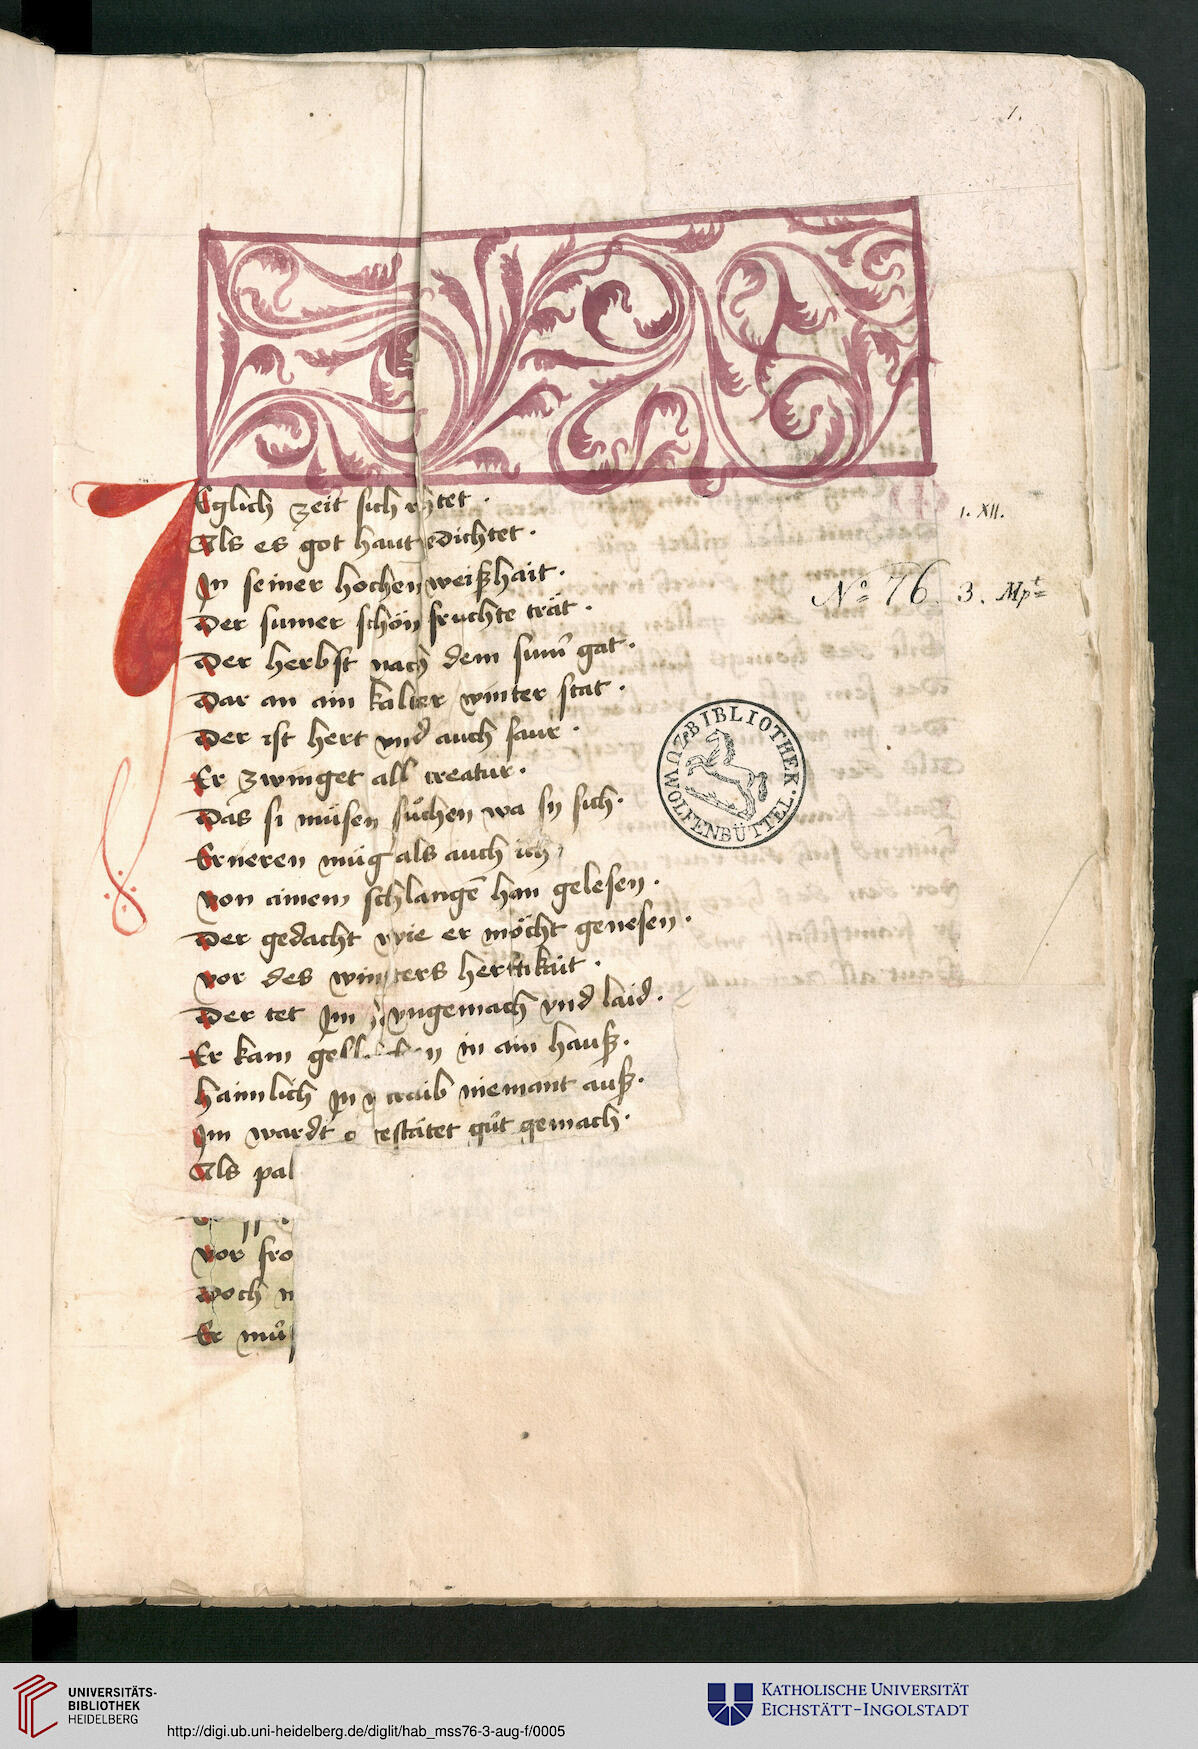 1.
Eglich zeit sich rihtet ·
Als es got haut gedichtet ·
In seiner hochen weißhait ·
Der sumer schön fruchte trät ·
Der herbst nach dem sum̄ gat ·
Dar an ain kalter winter stat ·
Der ist hert vnd auch saur ·
Er zwinget all creatur ·
Das si müsen sůchen wa sy sich ·
Erneren müg als auch ich
von ainem schlangē han gelesen ·
Der gedacht wie er möcht genesen ·
vor des winters herttikäit ·
Der tet Im vngemach vnd laid ·
Er kam in ain hauß ·
haimlich In traib niemant auß ·
Im wardt estätet gůt gemach ·
Als pal
vor fro
Doch
Er můs
1. XII.
Nº 76. 3. Mpt
BIBLIOTHEK · WOLFENBÜTTEL · ZU
UNIVERSITÄTS-
BIBLIOTHEK
HEIDELBERG
http://digi.ub.uni-heidelberg.de/diglit/hab_mss76-3-aug-f/0005
KATHOLISCHE UNIVERSITÄT
EICHSTÄTT-INGOLSTADT